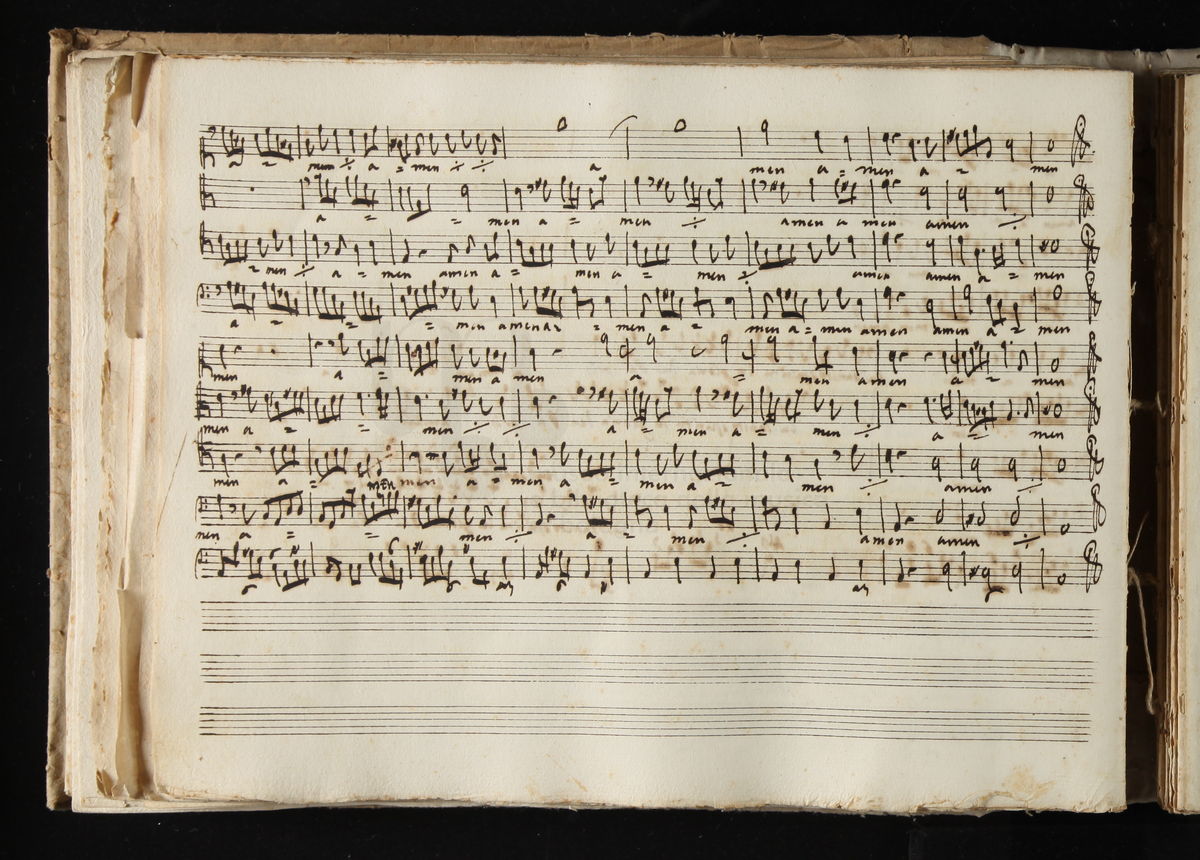 a = men ÷ a = men ÷ ÷ a men a = men a = men
a = = men a = men ÷ amen a men amen ÷
= men ÷ a = men amen a = men a = men ÷ amen amen a = men
a = = = men amen a = = men a = men a = men amen amen a = men
men a = men a men a = men amen a = men
men a = = men ÷ ÷ a = men a = men ÷ a = men
men a = men men a = men a = men a = men ÷ amen ÷
men a = = men ÷ a = men ÷ amen amen ÷